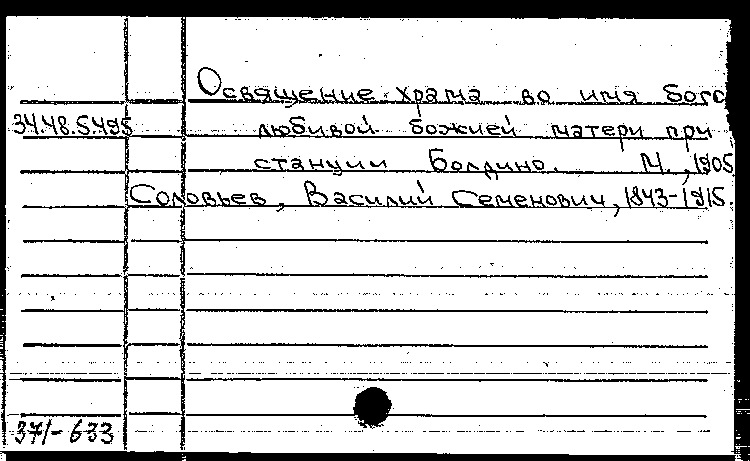 Освящение храма во имя бого
34.48.5.495 любивой божией матери при
станции Болдино. М., 1905
Соловьев, Василий Семенович, 1843-1915.
371-633